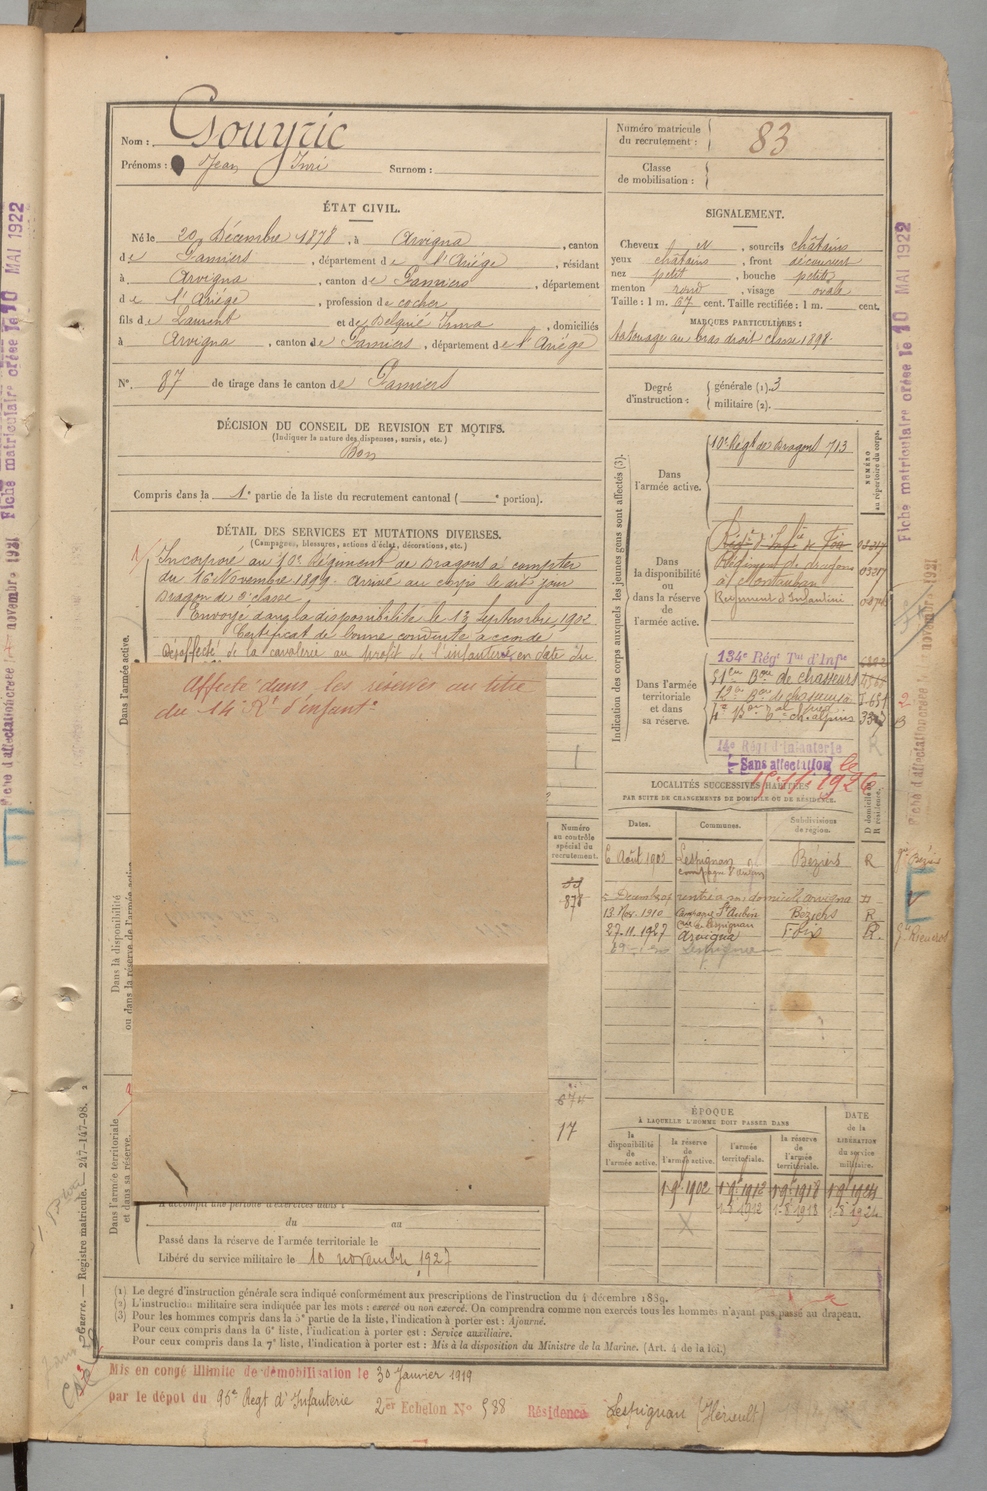 Nom : Gouyric
Prénoms : Jean Irmi Surnom :
Numéro matricule du recrutement : 83
Classe de mobilisation :
ÉTAT CIVIL.
Né le 20 Décembre 1878, à Arvigna, canton
de Pamiers, département de l'Ariége, résidant
à Arvigna, canton de Pamiers, département
de l'Ariége, profession de cocher
fils de Laurent et de Delguié Irma, domiciliés
à Arvigna, canton de Pamiers, département de l'Ariége
N° 87 de tirage dans le canton de Pamiers
SIGNALEMENT.
Cheveux N, sourcils châtains
yeux châtains, front découvert
nez petit, bouche petite
menton rond, visage ovale
Taille : 1 m. 67 cent. Taille rectifiée : 1 m. cent.
MARQUES PARTICULIÈRES :
tatouage au bras droit classe 1898.
Degré d'instruction : générale (1). 3
militaire (2).
DÉCISION DU CONSEIL DE REVISION ET MOTIFS.
(Indiquer la nature des dispenses, sursis, etc.)
Bon
Compris dans la 1e partie de la liste du recrutement cantonal ( e portion).
DÉTAIL DES SERVICES ET MUTATIONS DIVERSES.
(Campagnes, blessures, actions d'éclat, décorations, etc.)
Incorporé au 10e Régiment de Dragons à compter
du 16 Novembre 1899. Arrivé au corps le dit jour
Dragon de 2e classe
Envoyé dans la disponibilité le 13 Septembre 1902
Certificat de bonne conduite accordé
Désaffecté de la cavalerie au profit de l'infanterie en date du
Affecté dans les réserves au titre
du 14e Rt d'infantie
Dans l'armée active.
Dans la disponibilité
ou dans la réserve de l'armée active
Dans l'armée territoriale
et dans sa réserve.
Numéro au contrôle spécial du recrutement.
878
874
17
A accompli une période d'exercices dans :
du au
Passé dans la réserve de l'armée territoriale le
Libéré du service militaire le 10 novembre 1927
Indication des corps auxquels les jeunes gens sont affectés (3).
NUMÉRO au répertoire du corps.
Dans l'armée active.
10e Régt de Dragons 713
Dans la disponibilité ou dans la réserve de l'armée active.
Régt d'Infie de Foix
Régiment de dragons
à Montauban
Régiment d'Infanterie
Dans l'armée territoriale et dans sa réserve.
134e Régt Tal d'Infie
51em Bon de chasseurs
12e Bon de chasseurs
14e Régt d'Infanterie
Sans affectation le
15-11-1926
LOCALITÉS SUCCESSIVES HABITÉES
PAR SUITE DE CHANGEMENTS DE DOMICILE OU DE RÉSIDENCE.
Dates. Communes. Subdivisions de région. D domicile R résidence.
6 Août 1902 Lespignan Béziers R
Décembre 07 rentré à son domicile Arvigna
13 Nov. 1910 Campagne St Aubin Beziers R
Cne de Lespignan
27.11.1927 Arvigna Foix R.
Lespignan
ÉPOQUE
À LAQUELLE L'HOMME DOIT PASSER DANS
la disponibilité de l'armée active.
la réserve de l'armée active.
l'armée territoriale.
la réserve de l'armée territoriale.
DATE de la LIBÉRATION du service militaire.
1-9-1902 1-9-1912 1-9-1918 1-9-1924
1-8-1912 1-8-1918 1-8-1924
(1) Le degré d'instruction générale sera indiqué conformément aux prescriptions de l'instruction du 4 décembre 1889.
(2) L'instruction militaire sera indiquée par les mots : exercé ou non exercé. On comprendra comme non exercés tous les hommes n'ayant pas passé au drapeau.
(3) Pour les hommes compris dans la 5e partie de la liste, l'indication à porter est : Ajourné.
Pour ceux compris dans la 6e liste, l'indication à porter est : Service auxiliaire.
Pour ceux compris dans la 7e liste, l'indication à porter est : Mis à la disposition du Ministre de la Marine. (Art. 4 de la loi.)
Mis en congé illimité de démobilisation le 30 Janvier 1919
par le dépot du 96e Regt d'Infanterie 2er Echelon N° 538 Résidence Lespignan (Hérault)
Guerre. — Registre matricule. 247-147-98.
Fiche matriculaire créée le 10 MAI 1922
Fiche matriculaire créée le 10 MAI 1922
Fiche d'affectation créée le novembre 1921
Fiche d'affectation créée le novembre 1921